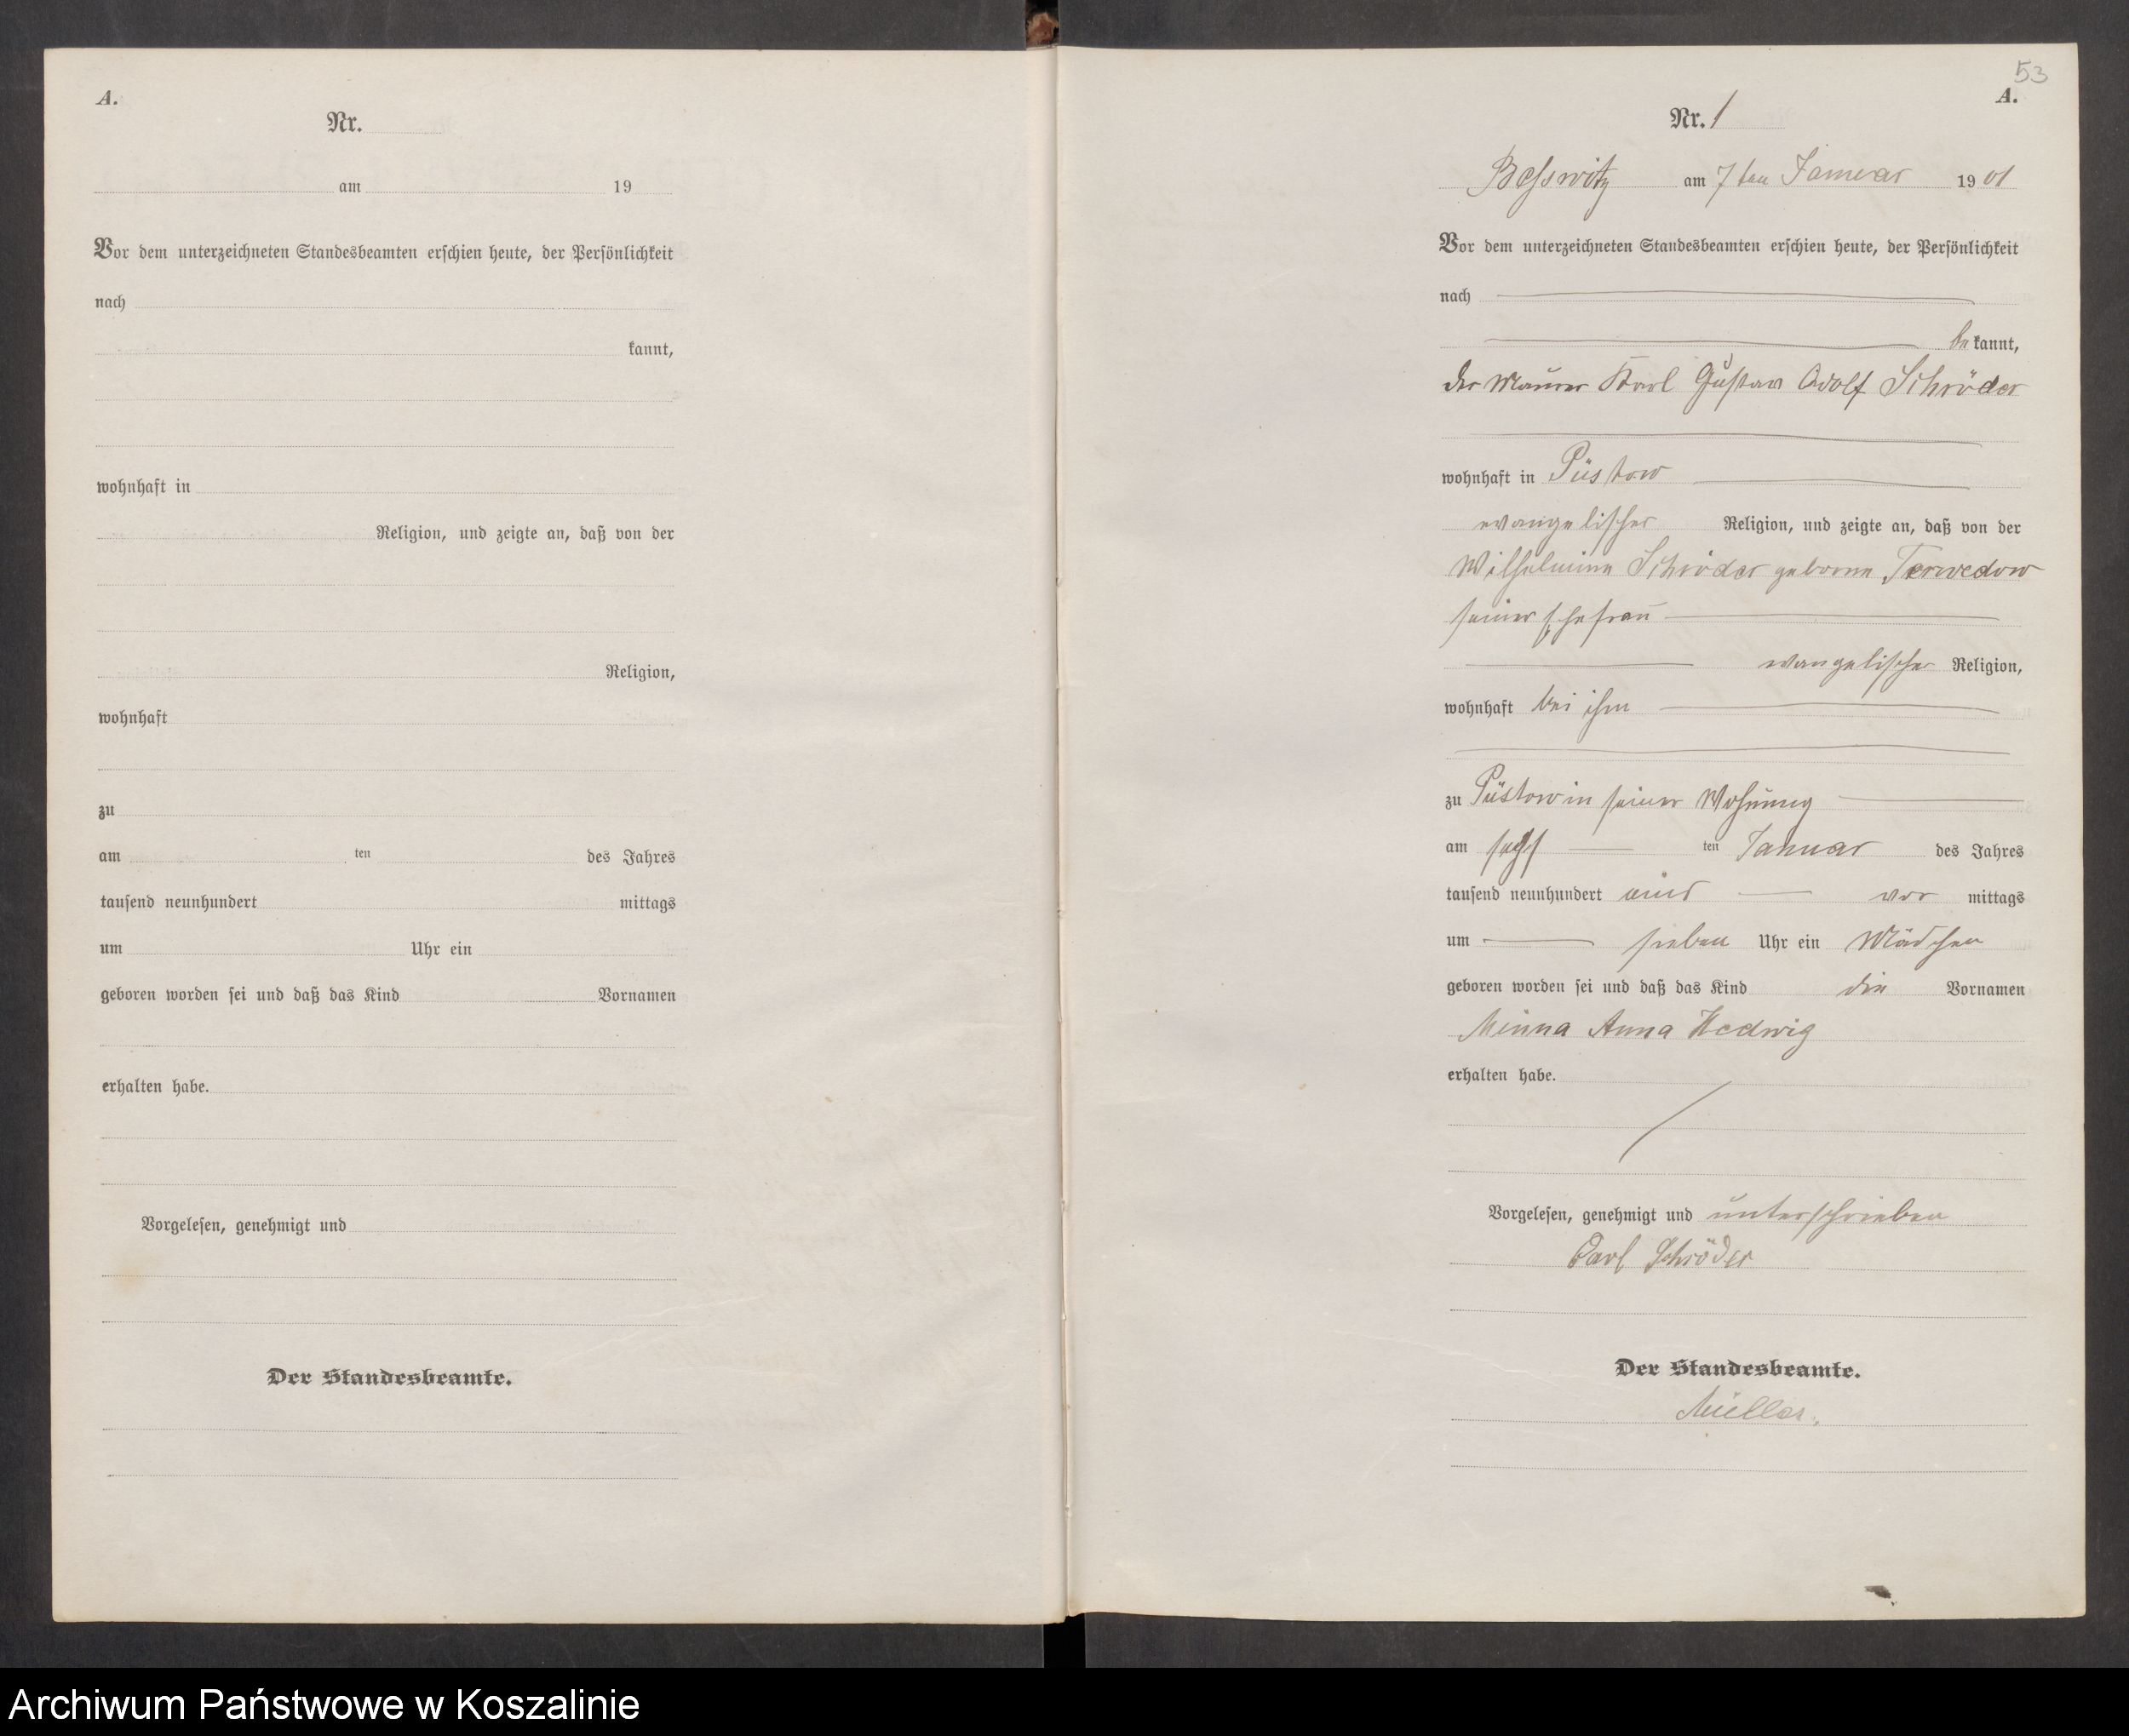 A.
Nr.
am 19
Vor dem unterzeichneten Standesbeamten erschien heute, der Persönlichkeit
nach
kannt,
wohnhaft in
Religion, und zeigte an, daß von der
Religion,
wohnhaft
zu
am ten des Jahres
tausend neunhundert mittags
um Uhr ein
geboren worden sei und daß das Kind Vornamen
erhalten habe.
Vorgelesen, genehmigt und
Der Standesbeamte.
53
A.
Nr. 1
Besswitz am 7ten Januar 1901
Vor dem unterzeichneten Standesbeamten erschien heute, der Persönlichkeit
nach
bekannt,
der Maurer Karl Gustav Adolf Schröder
wohnhaft in Püstow
evangelischer Religion, und zeigte an, daß von der
Wilhelmine Schröder geborne Terwedow
seiner Ehefrau
evangelischer Religion,
wohnhaft bei ihm
zu Püstow in seiner Wohnung
am sechsten Januar des Jahres
tausend neunhundert eins vor mittags
um sieben Uhr ein Mädchen
geboren worden sei und daß das Kind die Vornamen
Minna Anna Hedwig
erhalten habe.
Vorgelesen, genehmigt und unterschrieben
Carl Schröder
Der Standesbeamte.
Müller.
Archiwum Państwowe w Koszalinie